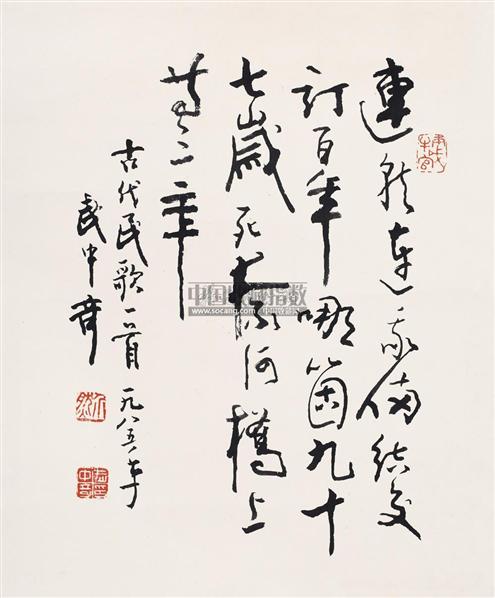 連就連我倆結交
訂百年哪箇九十
七歲死奈何橋上
等三年
古代民歌一首 一九八五年
武中奇
中国收藏指数
www.socang.com